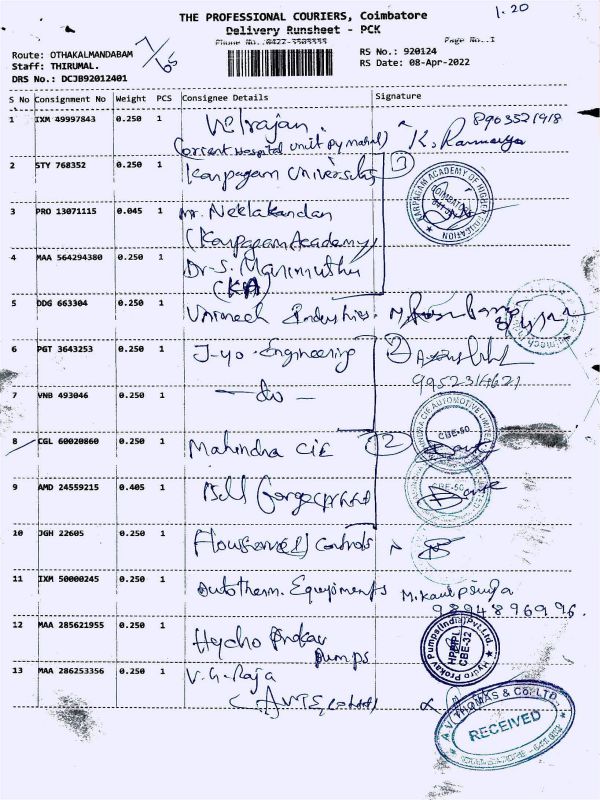 1.20
THE PROFESSIONAL COURIERS, Coimbatore
Delivery Runsheet - PCK
Phone No.:0422-3505555
Page No.:1
Route: OTHAKALMANDABAM
Staff: THIRUMAL.
DRS No.: DCJB92012401
7/65
RS No.: 920124
RS Date: 08-Apr-2022
S No Consignment No Weight PCS Consignee Details Signature
1 IXM 49997843 0.250 1 Velrajan. 8903521918
(current Hospital unit Pymahal)
2 STY 768352 0.250 1 Karpagam University 3
KARPAGAM ACADEMY OF HIGHER EDUCATION
COIMBATORE
3 PRO 13071115 0.045 1 Mr. Neelakandan
(Karpagam Academy)
4 MAA 564294380 0.250 1 Dr. S. Marimuthu
(KA)
5 DDG 663304 0.250 1 Industries.
6 PGT 3643253 0.250 1 J-yo Engineering 2
9952314621
7 VNB 493046 0.250 1 - do -
8 CGL 60020860 0.250 1 Mahindra CIE 2
MAHINDRA CIE AUTOMOTIVE LIMITED
CBE-50
9 AMD 24559215 0.405 1 Bill
CBE-50
10 JGH 22605 0.250 1 Controls
11 IXM 50000245 0.250 1 Autotherm. Equipments
98948 96996.
12 MAA 285621955 0.250 1 Hycho Prokav
Pumps
Hydro Prokav Pumps(India)Pvt.Ltd.
HPPIPL
CBE-32
13 MAA 286253356 0.250 1 V.G. Raja
A.V. THOMAS & CO. LTD.
RECEIVED